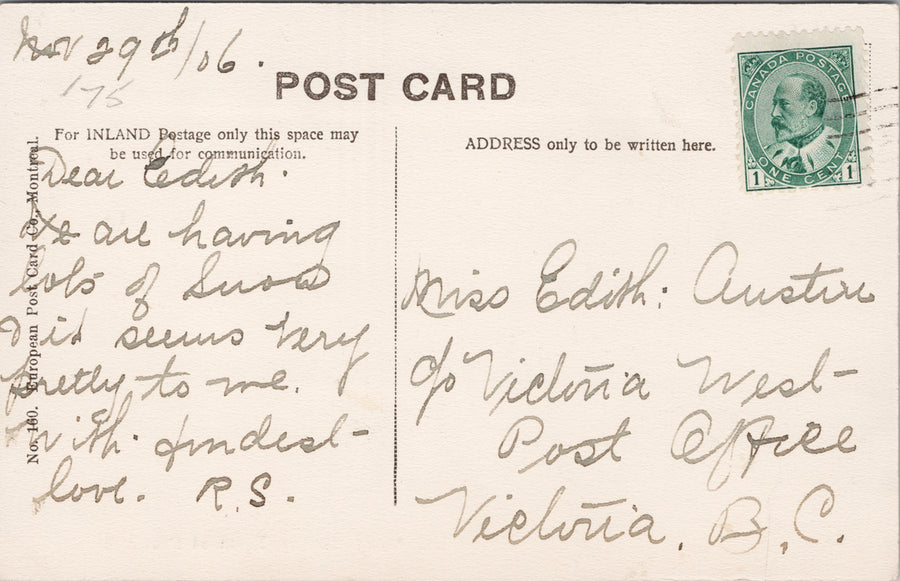 Nov 29th/06.
175
POST CARD
For INLAND Postage only this space may
be used for communication.
ADDRESS only to be written here.
CANADA POSTAGE
ONE CENT
1 1
No. 160. European Post Card Co., Montreal.
Dear Edith.
We are having
lots of Snow
& it seems very
pretty to me.
With fondest
love. R.S.
Miss Edith: Austin
c/o Victoria West
Post Office
Victoria, B.C.